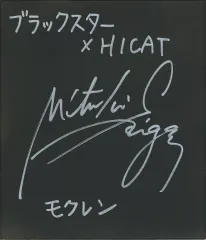 ブラックスター
× HICAT
モクレン